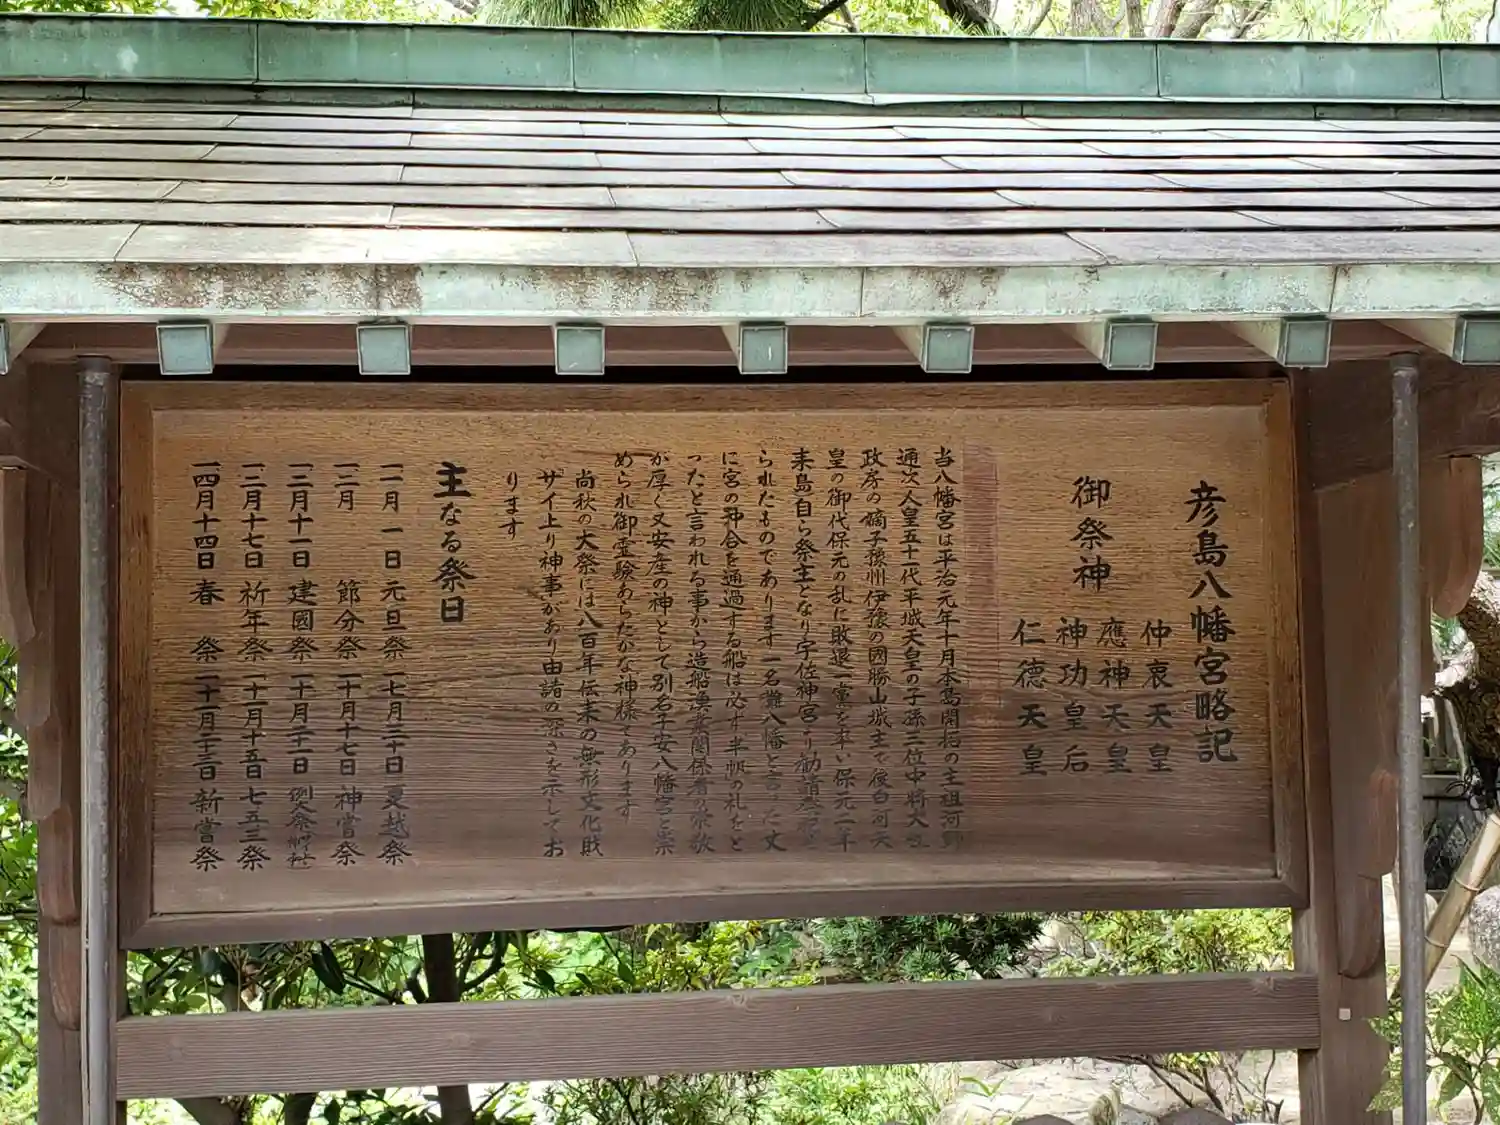 彦島八幡宮略記
御祭神
仲哀天皇
應神天皇
神功皇后
仁徳天皇
当八幡宮は平治元年十月本島開拓の主祖河野
通次人皇五十一代平城天皇の子孫三位中将大
政房の嫡子豫州伊豫の国勝山城主で後白河天
皇の御代保元の乱に敗退一党を率い保元二年
来島自ら祭主となり宇佐神宮より勧請
られたものであります一名灘八幡と言った丈
に宮の沖合を通過する船は必ず半帆の礼をと
ったと言われる事から造船漁業関係者の崇敬
が厚く又安産の神として別名子安八幡宮と崇
められ御霊験あらたかな神様であります
尚秋の大祭には八百年伝来の無形文化財
サイ上り神事があり由諸の深さを示してお
ります
主なる祭日
一月一日 元旦祭 一七月三十日 夏越祭
一二月 節分祭 一十月十七日 神嘗祭
一二月十一日 建國祭 一十月二十一日 例大祭
一二月十七日 祈年祭 一十一月十五日 七五三祭
一四月十四日 春祭 一十一月二十三日 新嘗祭